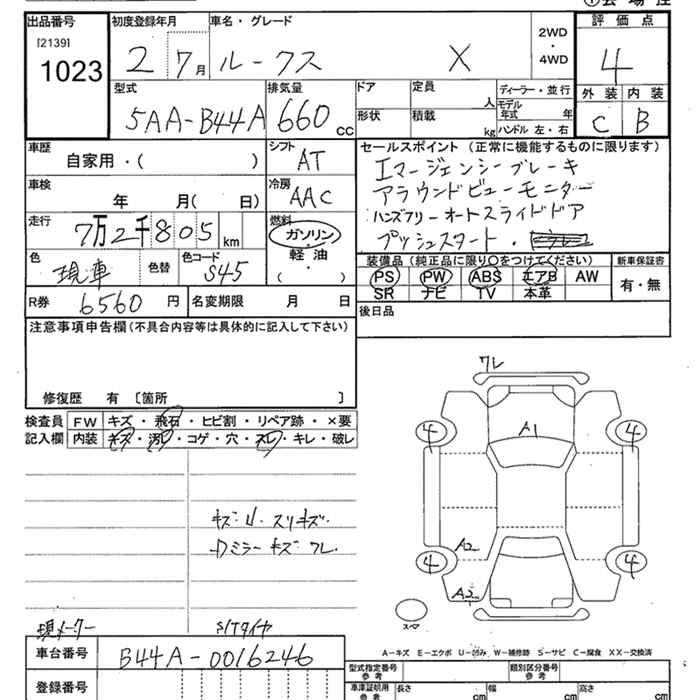 ①会場控
出品番号 初度登録年月 車名・グレード 2WD・4WD 評価点
[2139]
1023 2 7月 ルークス X 4
型式 排気量 ドア 定員 人 ディーラー・並行 外装 内装
5AA-B44A 660cc 形状 積載 kg モデル年式 年 ハンドル 左・右 C B
車歴 シフト セールスポイント (正常に機能するものに限ります)
自家用・( ) AT エマージェンシーブレーキ
車検 冷房 アラウンドビューモニター
年 月( 日) AAC ハンズフリーオートスライドドア
走行 燃料 プッシュスタート・
7万2千805km ガソリン・軽油・( )
色 色替 色コード 装備品 (純正品に限り○をつけてください) 新車保証書
現車 S45 PS PW ABS エアB AW 有・無
SR ナビ TV 本革
R券 6560円 名変期限 月 日 後日品
注意事項申告欄 (不具合内容等は具体的に記入して下さい)
修復歴 有 〔箇所 〕
検査員 FW キズ・飛石・ヒビ割・リペア跡・×要
記入欄 内装 キズ・汚レ・コゲ・穴・スレ・キレ・破レ
ワレ
4 A1 4
キズU スリキズ
Dミラーキズワレ
4 A2 4
A2
スペア
現メーター S/Tタイヤ
A-キズ E-エクボ U-凹み W-補修跡 S-サビ C-腐食 XX-交換済
車台番号 B44A-0016246 型式指定番号 参考 類別区分番号 参考
登録番号 車庫証明用 参考 長さ cm 幅 cm 高さ cm